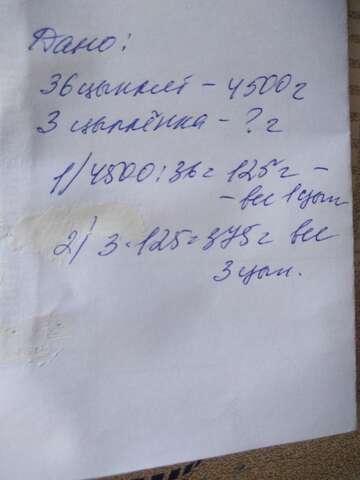 Дано:
36 цыплят – 4500 г
3 цыплёнка – ? г
1) 4500 : 36 = 125 г –
– вес 1 цып
2) 3 · 125 = 375 г вес
3 цып.